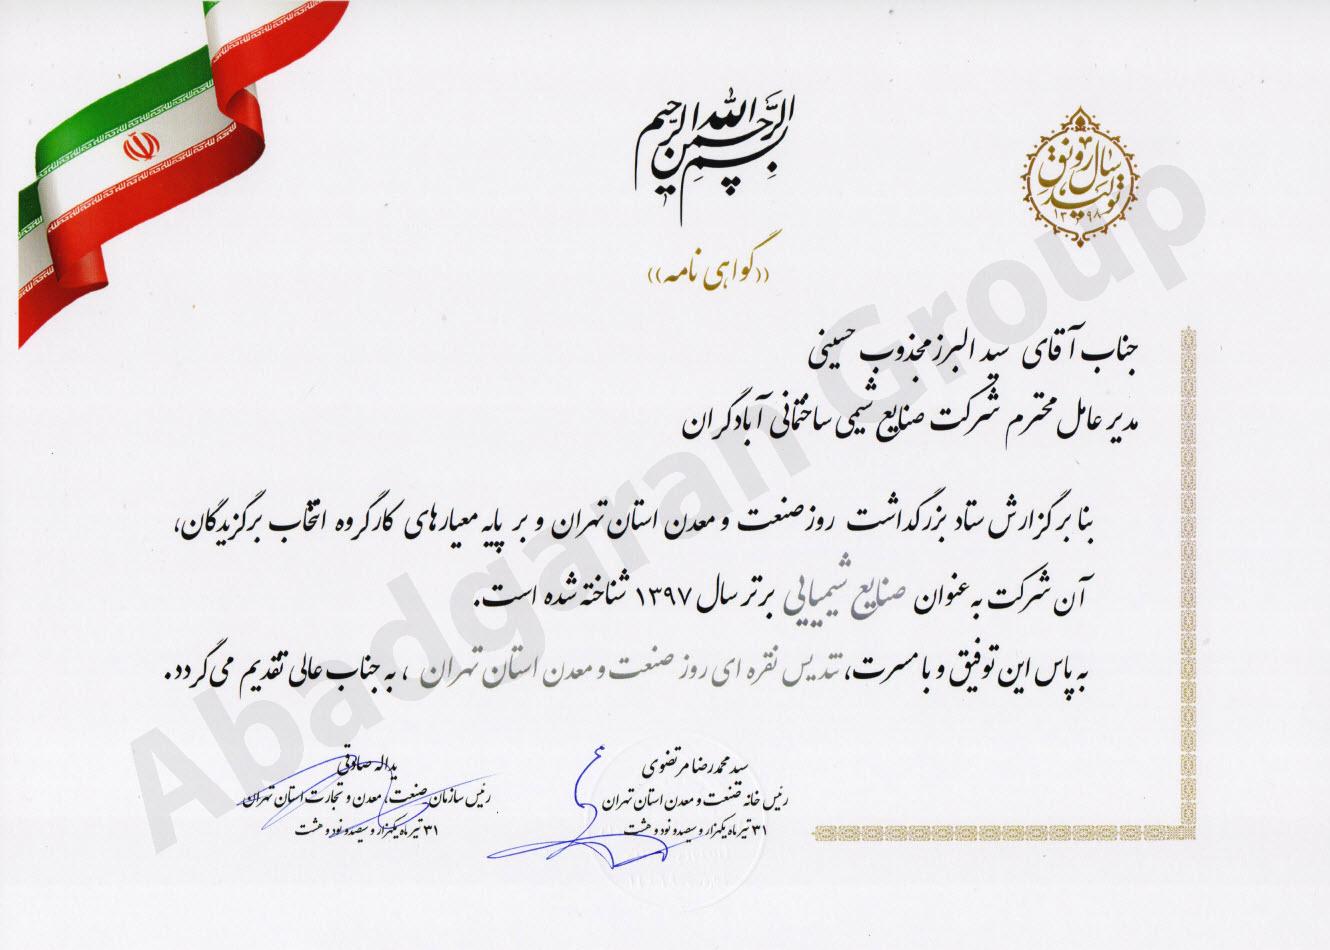 بسم الله الرحمن الرحیم
سال رونق تولید ۱۳۹۸
((گواهی نامه))
جناب آقای سید البرز مجذوب حسینی
مدیر عامل محترم شرکت صنایع شیمی ساختمانی آبادگران
بنا بر گزارش ستاد بزرگداشت روز صنعت و معدن استان تهران و بر پایه معیارهای کارگروه انتخاب برگزیدگان،
آن شرکت به عنوان صنایع شیمیایی برتر سال ۱۳۹۷ شناخته شده است.
به پاس این توفیق و با مسرت، تندیس نقره ای روز صنعت و معدن استان تهران ، به جناب عالی تقدیم می گردد.
سید محمدرضا مرتضوی
رئیس خانه صنعت و معدن استان تهران
۳۱ تیر ماه یکهزار و سیصد و نود و هشت
یداله صادقی
رئیس سازمان صنعت، معدن و تجارت استان تهران
۳۱ تیر ماه یکهزار و سیصد و نود و هشت
Abadgaran Group